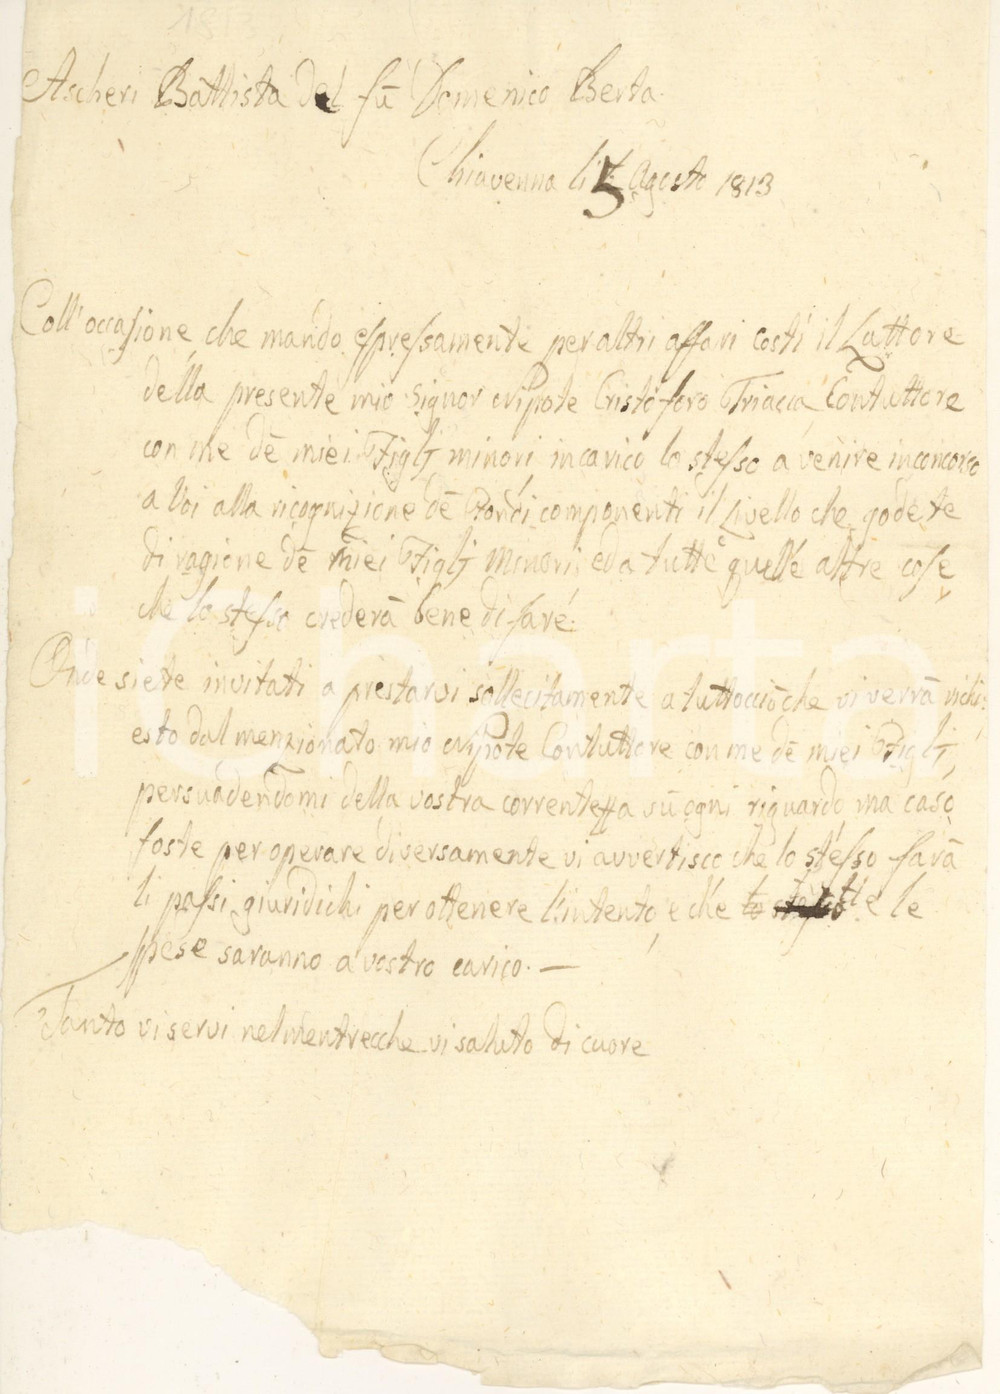 1813
Ascheri Battista del fù Domenico Berta.
Chiavenna li 5 Agosto 1813
Coll'occasione che mando espressamente per altri affari costì il Lattore
della presente mio Signor Nipote Cristoforo Triacca Contuttore
con me dè miei Figlj minori, incarico lo stesso a venire in concorso
a Voi alla ricognizione dè Fondi componenti il Livello che godete
di ragione dè miei Figlj Minori, ed a tutte quelle altre cose
che lo stesso crederà bene di fare.
Onde siete invitati a prestarvi sollecitamente a tuttocciò che vi verrà richi:
esto dal menzionato mio Nipote Contuttore con me dè miei Figlj,
persuadendomi della vostra correntezza sù ogni riguardo, ma caso
foste per operare diversamente vi avvertisco che lo stesso farà
li passi giuridichi per ottenere l'intento, e che le
spese saranno a vostro carico. —
Tanto vi servi nel mentrecche vi saluto di cuore
iCharta